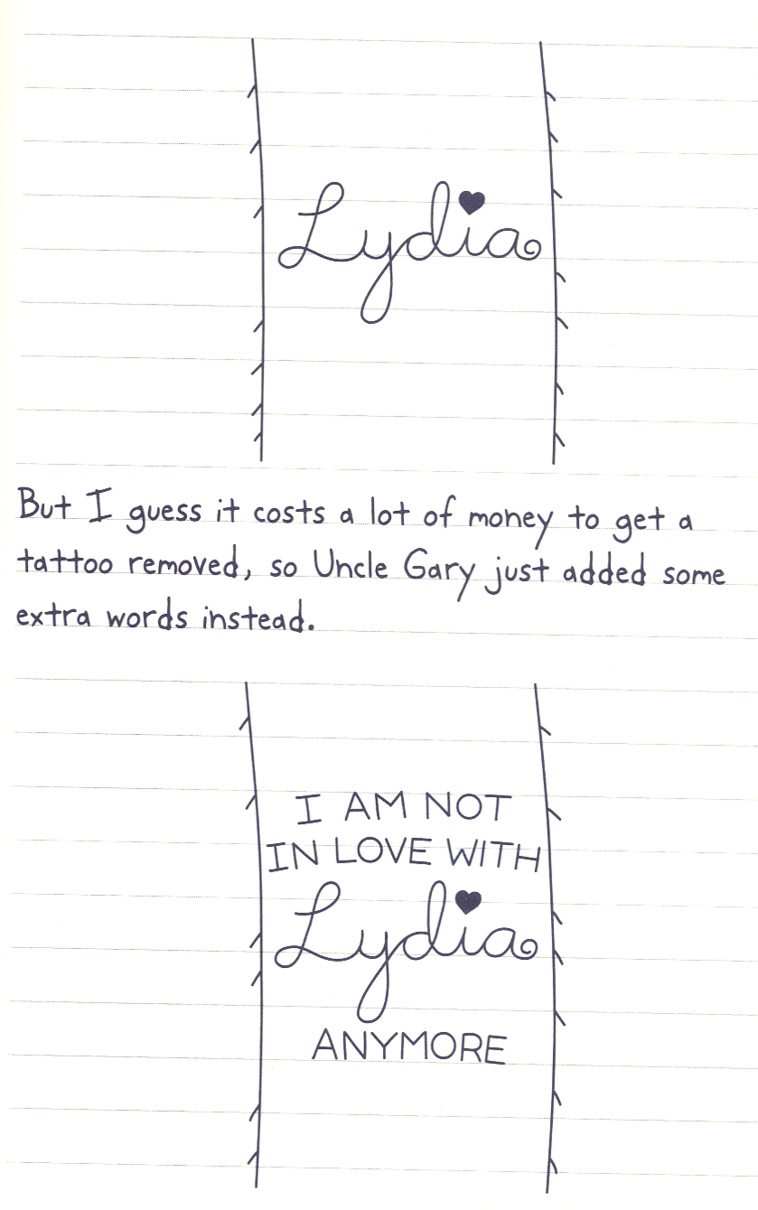 Lydia
But I guess it costs a lot of money to get a
tattoo removed, so Uncle Gary just added some
extra words instead.
I AM NOT
IN LOVE WITH
Lydia
ANYMORE